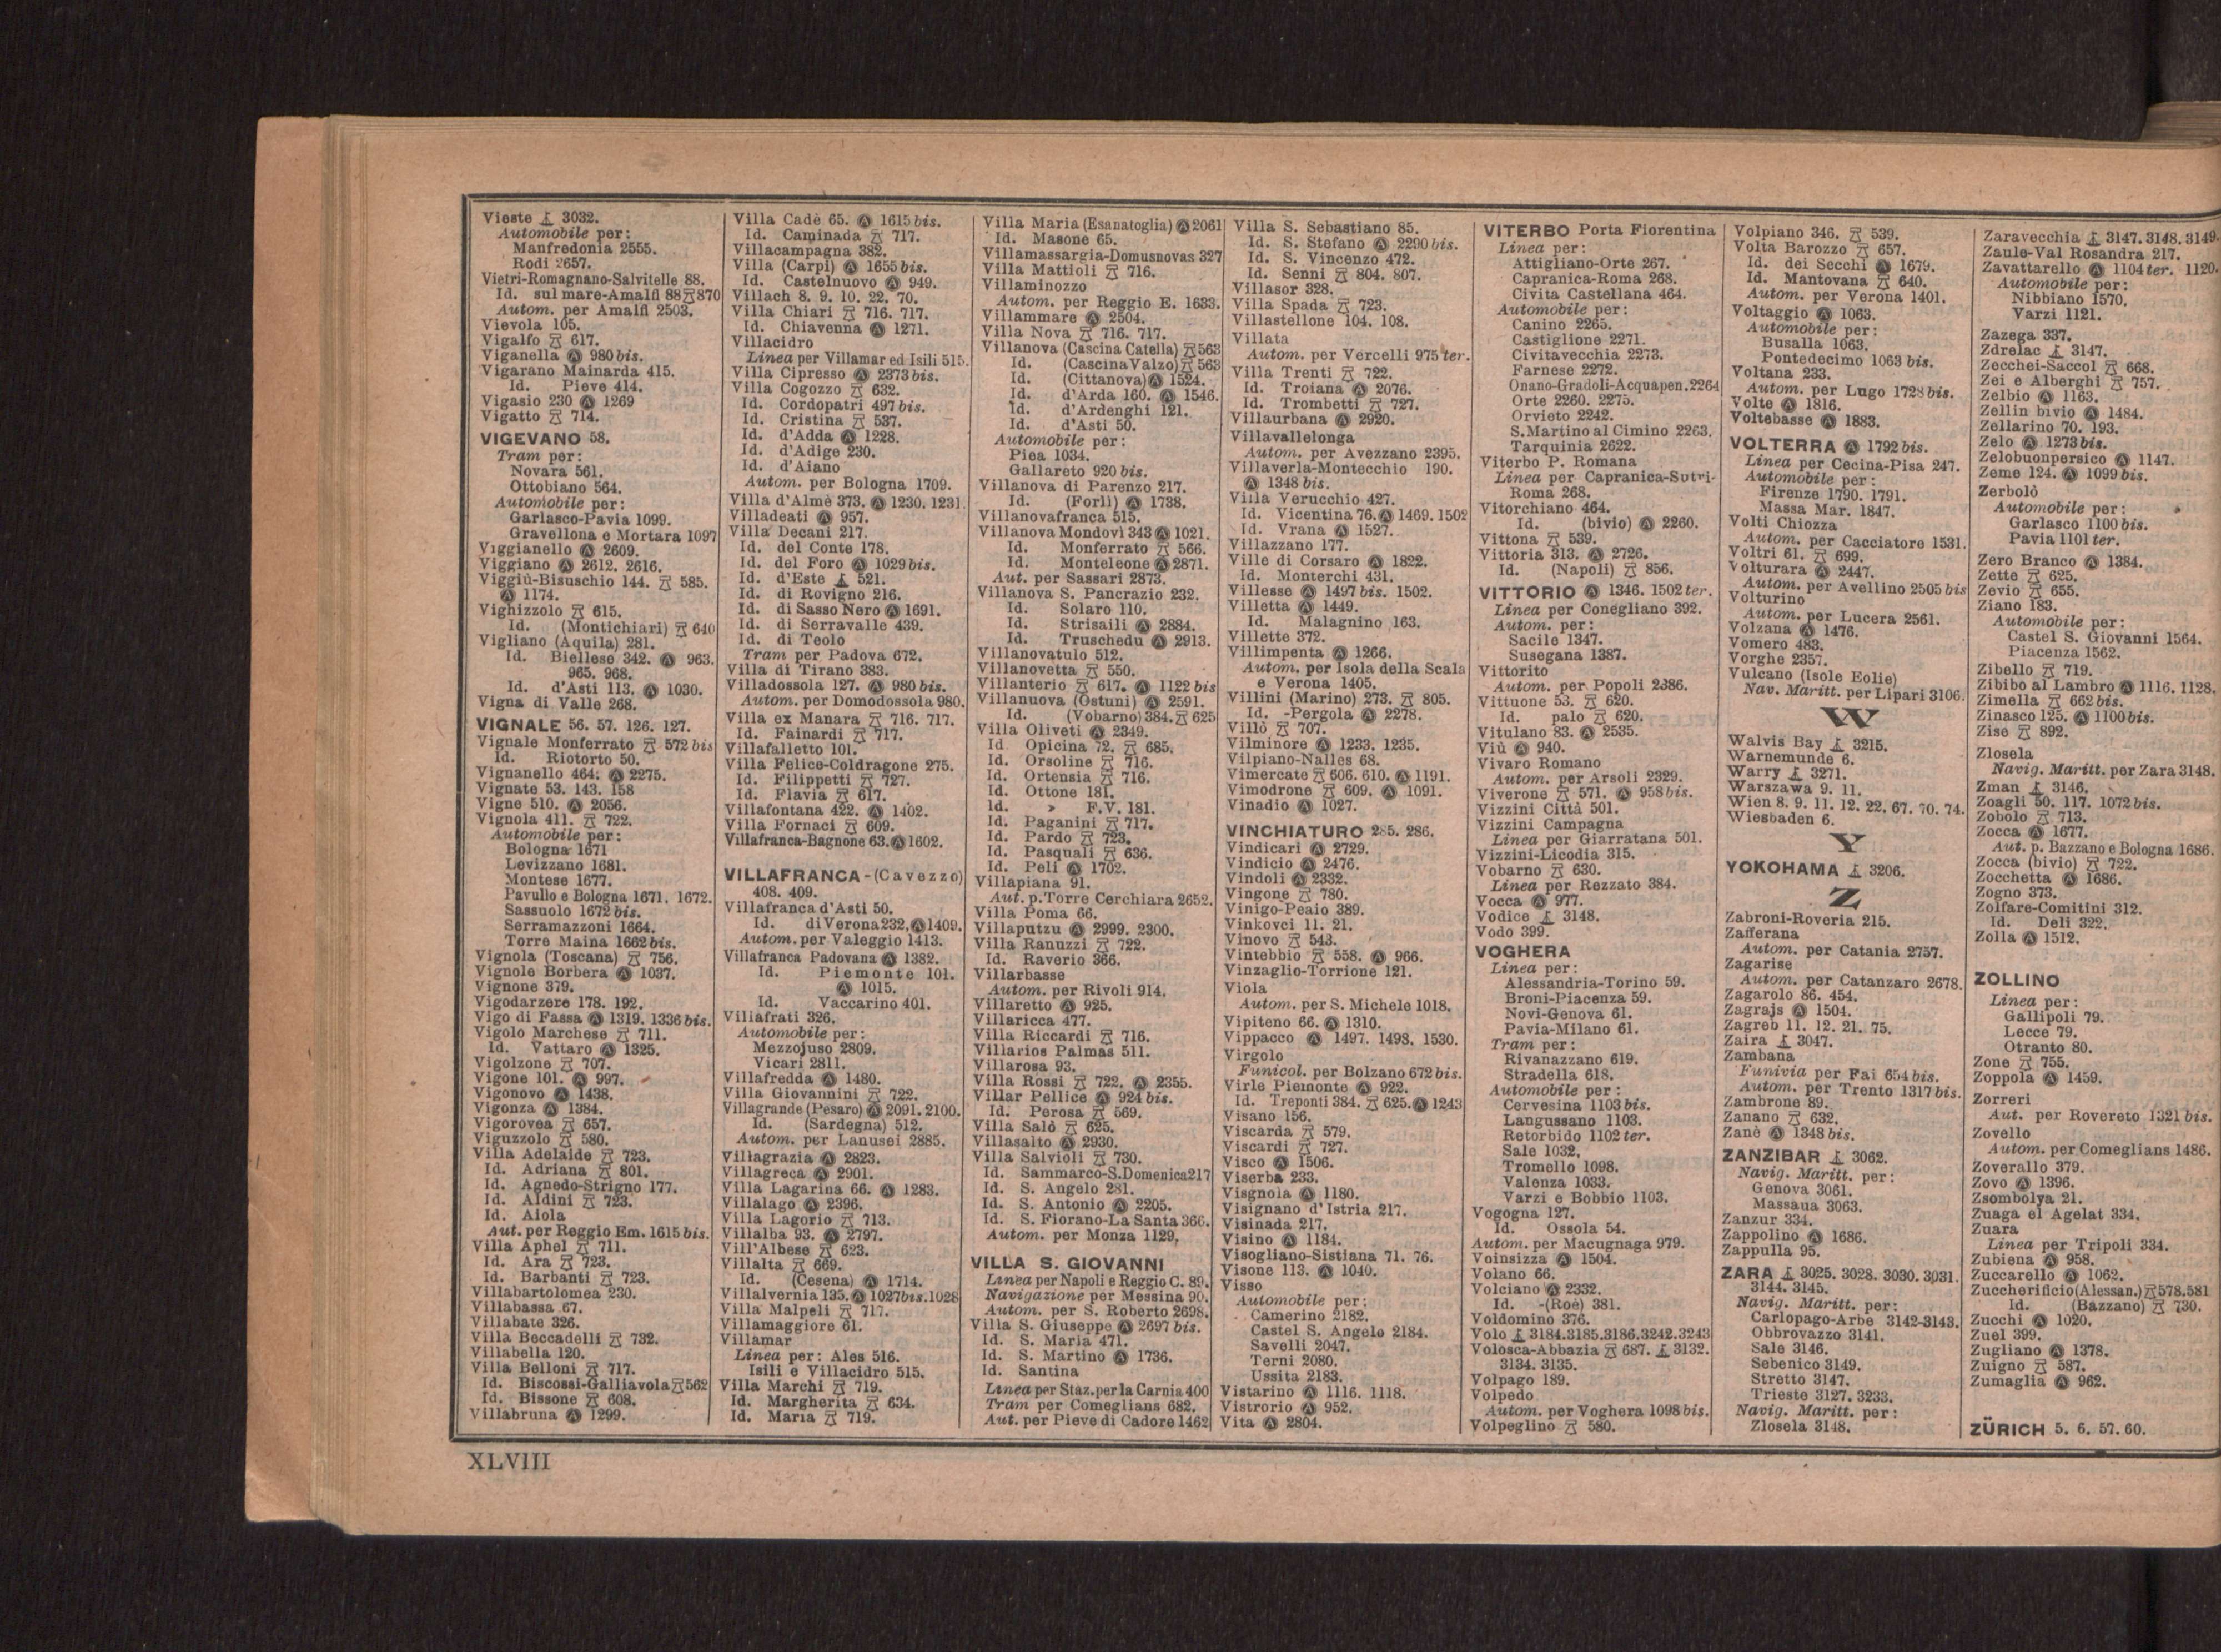 Vieste 3032.
Automobile per:
Manfredonia 2555.
Rodi 2657.
Vietri-Romagnano-Salvitelle 88.
Id. sul mare-Amalfi 88 870
Autom. per Amalfi 2503.
Vievola 105.
Vigalfo 617.
Viganella Ⓐ 980 bis.
Vigarano Mainarda 415.
Id. Pieve 414.
Vigasio 230 Ⓐ 1269
Vigatto 714.
VIGEVANO 58.
Tram per:
Novara 561.
Ottobiano 564.
Automobile per:
Garlasco-Pavia 1099.
Gravellona e Mortara 1097
Viggianello Ⓐ 2609.
Viggiano Ⓐ 2612. 2616.
Viggiù-Bisuschio 144. 585.
Ⓐ 1174.
Vighizzolo 615.
Id. (Montichiari) 640
Vigliano (Aquila) 281.
Id. Biellese 342. Ⓐ 963.
965. 968.
Id. d'Asti 113. Ⓐ 1030.
Vigna di Valle 268.
VIGNALE 56. 57. 126. 127.
Vignale Monferrato 572 bis
Id. Riotorto 50.
Vignanello 464. Ⓐ 2275.
Vignate 53. 143. 158
Vigne 510. Ⓐ 2056.
Vignola 411. 722.
Automobile per:
Bologna 1671
Levizzano 1681.
Montese 1677.
Pavullo e Bologna 1671. 1672.
Sassuolo 1672 bis.
Serramazzoni 1664.
Torre Maina 1662 bis.
Vignola (Toscana) 756.
Vignole Borbera Ⓐ 1037.
Vignone 379.
Vigodarzere 178. 192.
Vigo di Fassa Ⓐ 1319. 1336 bis.
Vigolo Marchese 711.
Id. Vattaro Ⓐ 1325.
Vigolzone 707.
Vigone 101. Ⓐ 997.
Vigonovo Ⓐ 1438.
Vigonza Ⓐ 1384.
Vigorovea 657.
Viguzzolo 580.
Villa Adelaide 723.
Id. Adriana 801.
Id. Agnedo-Strigno 177.
Id. Aldini 723.
Id. Aiola
Aut. per Reggio Em. 1615 bis.
Villa Aphel 711.
Id. Ara 723.
Id. Barbanti 723.
Villabartolomea 230.
Villabassa 67.
Villabate 326.
Villa Beccadelli 732.
Villabella 120.
Villa Belloni 717.
Id. Biscossi-Galliavola 562
Id. Bissone 608.
Villabruna Ⓐ 1299.
Villa Cadè 65. Ⓐ 1615 bis.
Id. Caminada 717.
Villacampagna 382.
Villa (Carpi) Ⓐ 1655 bis.
Id. Castelnuovo Ⓐ 949.
Villach 8. 9. 10. 22. 70.
Villa Chiari 716. 717.
Id. Chiavenna Ⓐ 1271.
Villacidro
Linea per Villamar ed Isili 515.
Villa Cipresso Ⓐ 2373 bis.
Villa Cogozzo 632.
Id. Cordopatri 497 bis.
Id. Cristina 537.
Id. d'Adda Ⓐ 1228.
Id. d'Adige 230.
Id. d'Aiano
Autom. per Bologna 1709.
Villa d'Almè 373. Ⓐ 1230. 1231.
Villadeati Ⓐ 957.
Villa Decani 217.
Id. del Conte 178.
Id. del Foro Ⓐ 1029 bis.
Id. d'Este 521.
Id. di Rovigno 216.
Id. di Sasso Nero Ⓐ 1691.
Id. di Serravalle 439.
Id. di Teolo
Tram per Padova 672.
Villa di Tirano 383.
Villadossola 127. Ⓐ 980 bis.
Autom. per Domodossola 980.
Villa ex Manara 716. 717.
Id. Fainardi 717.
Villafalletto 101.
Villa Felice-Coldragone 275.
Id. Filippetti 727.
Id. Flavia 617.
Villafontana 422. Ⓐ 1402.
Villa Fornaci 609.
Villafranca-Bagnone 63. Ⓐ 1602.
VILLAFRANCA - (Cavezzo)
408. 409.
Villafranca d'Asti 50.
Id. di Verona 232, Ⓐ 1409.
Autom. per Valeggio 1413.
Villafranca Padovana Ⓐ 1382.
Id. Piemonte 101.
Ⓐ 1015.
Id. Vaccarino 401.
Villafrati 326.
Automobile per:
Mezzojuso 2809.
Vicari 2811.
Villafredda Ⓐ 1480.
Villa Giovannini 722.
Villagrande (Pesaro) Ⓐ 2091. 2100.
Id. (Sardegna) 512.
Autom. per Lanusei 2885.
Villagrazia Ⓐ 2823.
Villagreca Ⓐ 2901.
Villa Lagarina 66. Ⓐ 1283.
Villalago Ⓐ 2396.
Villa Lagorio 713.
Villalba 93. Ⓐ 2797.
Vill'Albese 623.
Villalta 669.
Id. (Cesena) Ⓐ 1714.
Villalvernia 135. Ⓐ 1027bis. 1028
Villa Malpeli 717.
Villamaggiore 61.
Villamar
Linea per: Ales 516.
Isili e Villacidro 515.
Villa Marchi 719.
Id. Margherita 634.
Id. Maria 719.
Villa Maria (Esanatoglia) Ⓐ 2061
Id. Masone 65.
Villamassargia-Domusnovas 327
Villa Mattioli 716.
Villaminozzo
Autom. per Reggio E. 1633.
Villammare Ⓐ 2504.
Villa Nova 716. 717.
Villanova (Cascina Catella) 563
Id. (Cascina Valzo) 563
Id. (Cittanova) Ⓐ 1524.
Id. d'Arda 160. Ⓐ 1546.
Id. d'Ardenghi 121.
Id. d'Asti 50.
Automobile per:
Piea 1034.
Gallareto 920 bis.
Villanova di Parenzo 217.
Id. (Forlì) Ⓐ 1738.
Villanovafranca 515.
Villanova Mondovì 343 Ⓐ 1021.
Id. Monferrato 566.
Id. Monteleone Ⓐ 2871.
Aut. per Sassari 2873.
Villanova S. Pancrazio 232.
Id. Solaro 110.
Id. Strisaili Ⓐ 2884.
Id. Truschedu Ⓐ 2913.
Villanovatulo 512.
Villanovetta 550.
Villanterio 617. Ⓐ 1122 bis
Villanuova (Ostuni) Ⓐ 2591.
Id. (Vobarno) 384. 625
Villa Oliveti Ⓐ 2349.
Id. Opicina 72. 685.
Id. Orsoline 716.
Id. Ortensia 716.
Id. Ottone 181.
Id. » F.V. 181.
Id. Paganini 717.
Id. Pardo 723.
Id. Pasquali 636.
Id. Peli Ⓐ 1702.
Villapiana 91.
Aut. p. Torre Cerchiara 2652.
Villa Poma 66.
Villaputzu Ⓐ 2999. 2300.
Villa Ranuzzi 722.
Id. Raverio 366.
Villarbasse
Autom. per Rivoli 914.
Villaretto Ⓐ 925.
Villaricca 477.
Villa Riccardi 716.
Villarios Palmas 511.
Villarosa 93.
Villa Rossi 722. Ⓐ 2355.
Villar Pellice Ⓐ 924 bis.
Id. Perosa 569.
Villa Salò 625.
Villasalto Ⓐ 2930.
Villa Salvioli 730.
Id. Sammarco-S.Domenica 217
Id. S. Angelo 281.
Id. S. Antonio Ⓐ 2205.
Id. S. Fiorano-La Santa 366.
Autom. per Monza 1129.
VILLA S. GIOVANNI
Linea per Napoli e Reggio C. 89.
Navigazione per Messina 90.
Autom. per S. Roberto 2698.
Villa S. Giuseppe Ⓐ 2697 bis.
Id. S. Maria 471.
Id. S. Martino Ⓐ 1736.
Id. Santina
Linea per Staz. per la Carnia 400
Tram per Comeglians 682.
Aut. per Pieve di Cadore 1462
Villa S. Sebastiano 85.
Id. S. Stefano Ⓐ 2290 bis.
Id. S. Vincenzo 472.
Id. Senni 804. 807.
Villasor 328.
Villa Spada 723.
Villastellone 104. 108.
Villata
Autom. per Vercelli 975 ter.
Villa Trenti 722.
Id. Troiana Ⓐ 2076.
Id. Trombetti 727.
Villaurbana Ⓐ 2920.
Villavallelonga
Autom. per Avezzano 2395.
Villaverla-Montecchio 190.
Ⓐ 1348 bis.
Villa Verucchio 427.
Id. Vicentina 76. Ⓐ 1469. 1502
Id. Vrana Ⓐ 1527.
Villazzano 177.
Ville di Corsaro Ⓐ 1822.
Id. Monterchi 431.
Villesse Ⓐ 1497 bis. 1502.
Villetta Ⓐ 1449.
Id. Malagnino 163.
Villette 372.
Villimpenta Ⓐ 1266.
Autom. per Isola della Scala
e Verona 1405.
Villini (Marino) 273. 805.
Id. -Pergola Ⓐ 2278.
Villò 707.
Vilminore Ⓐ 1233. 1235.
Vilpiano-Nalles 68.
Vimercate 606. 610. Ⓐ 1191.
Vimodrone 609. Ⓐ 1091.
Vinadio Ⓐ 1027.
VINCHIATURO 285. 286.
Vindicari Ⓐ 2729.
Vindicio Ⓐ 2476.
Vindoli Ⓐ 2332.
Vingone 780.
Vinigo-Peaio 389.
Vinkovci 11. 21.
Vinovo 543.
Vintebbio 558. Ⓐ 966.
Vinzaglio-Torrione 121.
Viola
Autom. per S. Michele 1018.
Vipiteno 66. Ⓐ 1310.
Vippacco Ⓐ 1497. 1498. 1530.
Virgolo
Funicol. per Bolzano 672 bis.
Virle Piemonte Ⓐ 922.
Id. Treponti 384. 625. Ⓐ 1243
Visano 156.
Viscarda 579.
Viscardi 727.
Visco Ⓐ 1506.
Viserba 233.
Visgnola Ⓐ 1180.
Visignano d'Istria 217.
Visinada 217.
Visino Ⓐ 1184.
Visogliano-Sistiana 71. 76.
Visone 113. Ⓐ 1040.
Visso
Automobile per:
Camerino 2182.
Castel S. Angelo 2184.
Savelli 2047.
Terni 2080.
Ussita 2183.
Vistarino Ⓐ 1116. 1118.
Vistrorio Ⓐ 952.
Vita Ⓐ 2804.
VITERBO Porta Fiorentina
Linea per:
Attigliano-Orte 267.
Capranica-Roma 268.
Civita Castellana 464.
Automobile per:
Canino 2265.
Castiglione 2271.
Civitavecchia 2273.
Farnese 2272.
Onano-Gradoli-Acquapen. 2264
Orte 2260. 2275.
Orvieto 2242.
S. Martino al Cimino 2263.
Tarquinia 2622.
Viterbo P. Romana
Linea per Capranica-Sutri-
Roma 268.
Vitorchiano 464.
Id. (bivio) Ⓐ 2260.
Vittona 539.
Vittoria 313. Ⓐ 2726.
Id. (Napoli) 856.
VITTORIO Ⓐ 1346. 1502 ter.
Linea per Conegliano 392.
Autom. per:
Sacile 1347.
Susegana 1387.
Vittorito
Autom. per Popoli 2386.
Vittuone 53. 620.
Id. palo 620.
Vitulano 83. Ⓐ 2535.
Viù Ⓐ 940.
Vivaro Romano
Autom. per Arsoli 2329.
Viverone 571. Ⓐ 958 bis.
Vizzini Città 501.
Vizzini Campagna
Linea per Giarratana 501.
Vizzini-Licodia 315.
Vobarno 630.
Linea per Rezzato 384.
Vocca Ⓐ 977.
Vodice 3148.
Vodo 399.
VOGHERA
Linea per:
Alessandria-Torino 59.
Broni-Piacenza 59.
Novi-Genova 61.
Pavia-Milano 61.
Tram per:
Rivanazzano 619.
Stradella 618.
Automobile per:
Cervesina 1103 bis.
Langussano 1103.
Retorbido 1102 ter.
Sale 1032.
Tromello 1098.
Valenza 1033.
Varzi e Bobbio 1103.
Vogogna 127.
Id. Ossola 54.
Autom. per Macugnaga 979.
Voinsizza Ⓐ 1504.
Volano 66.
Volciano Ⓐ 2332.
Id. -(Roè) 381.
Voldomino 376.
Volo 3184.3185.3186.3242.3243
Volosca-Abbazia 687. 3132.
3134. 3135.
Volpago 189.
Volpedo
Autom. per Voghera 1098 bis.
Volpeglino 580.
Volpiano 346. 539.
Volta Barozzo 657.
Id. dei Secchi Ⓐ 1679.
Id. Mantovana 640.
Autom. per Verona 1401.
Voltaggio Ⓐ 1063.
Automobile per:
Busalla 1063.
Pontedecimo 1063 bis.
Voltana 233.
Autom. per Lugo 1728 bis.
Volte Ⓐ 1816.
Voltebasse Ⓐ 1883.
VOLTERRA Ⓐ 1792 bis.
Linea per Cecina-Pisa 247.
Automobile per:
Firenze 1790. 1791.
Massa Mar. 1847.
Volti Chiozza
Autom. per Cacciatore 1531.
Voltri 61. 699.
Volturara Ⓐ 2447.
Autom. per Avellino 2505 bis
Volturino
Autom. per Lucera 2561.
Volzana Ⓐ 1476.
Vomero 483.
Vorghe 2357.
Vulcano (Isole Eolie)
Nav. Maritt. per Lipari 3106.
W
Walvis Bay 3215.
Warnemunde 6.
Warry 3271.
Warszawa 9. 11.
Wien 8. 9. 11. 12. 22. 67. 70. 74.
Wiesbaden 6.
Y
YOKOHAMA 3206.
Z
Zabroni-Roveria 215.
Zafferana
Autom. per Catania 2757.
Zagarise
Autom. per Catanzaro 2678.
Zagarolo 86. 454.
Zagrajs Ⓐ 1504.
Zagreb 11. 12. 21. 75.
Zaira 3047.
Zambana
Funivia per Fai 654 bis.
Autom. per Trento 1317 bis.
Zambrone 89.
Zanano 632.
Zanè Ⓐ 1348 bis.
ZANZIBAR 3062.
Navig. Maritt. per:
Genova 3061.
Massaua 3063.
Zanzur 334.
Zappolino Ⓐ 1686.
Zappulla 95.
ZARA 3025. 3028. 3030. 3031.
3144. 3145.
Navig. Maritt. per:
Carlopago-Arbe 3142-3143.
Obbrovazzo 3141.
Sale 3146.
Sebenico 3149.
Stretto 3147.
Trieste 3127. 3233.
Navig. Maritt. per:
Zlosela 3148.
Zaravecchia 3147. 3148. 3149.
Zaule-Val Rosandra 217.
Zavattarello Ⓐ 1104 ter. 1120.
Automobile per:
Nibbiano 1570.
Varzi 1121.
Zazega 337.
Zdrelac 3147.
Zecchei-Saccol 668.
Zei e Alberghi 757.
Zelbio Ⓐ 1163.
Zellin bivio Ⓐ 1484.
Zellarino 70. 193.
Zelo Ⓐ 1273 bis.
Zelobuonpersico Ⓐ 1147.
Zeme 124. Ⓐ 1099 bis.
Zerbolò
Automobile per:
Garlasco 1100 bis.
Pavia 1101 ter.
Zero Branco Ⓐ 1384.
Zette 625.
Zevio 655.
Ziano 183.
Automobile per:
Castel S. Giovanni 1564.
Piacenza 1562.
Zibello 719.
Zibibo al Lambro Ⓐ 1116. 1128.
Zimella 662 bis.
Zinasco 125. Ⓐ 1100 bis.
Zise 892.
Zlosela
Navig. Maritt. per Zara 3148.
Zman 3146.
Zoagli 50. 117. 1072 bis.
Zobolo 713.
Zocca Ⓐ 1677.
Aut. p. Bazzano e Bologna 1686.
Zocca (bivio) 722.
Zocchetta Ⓐ 1686.
Zogno 373.
Zolfare-Comitini 312.
Id. Deli 322.
Zolla Ⓐ 1512.
ZOLLINO
Linea per:
Gallipoli 79.
Lecce 79.
Otranto 80.
Zone 755.
Zoppola Ⓐ 1459.
Zorreri
Aut. per Rovereto 1321 bis.
Zovello
Autom. per Comeglians 1486.
Zoverallo 379.
Zovo Ⓐ 1396.
Zsombolya 21.
Zuaga el Agelat 334.
Zuara
Linea per Tripoli 334.
Zubiena Ⓐ 958.
Zuccarello Ⓐ 1062.
Zuccherificio (Alessan.) 578.581
Id. (Bazzano) 730.
Zucchi Ⓐ 1020.
Zuel 399.
Zugliano Ⓐ 1378.
Zuigno 587.
Zumaglia Ⓐ 962.
ZÜRICH 5. 6. 57. 60.
XLVIII